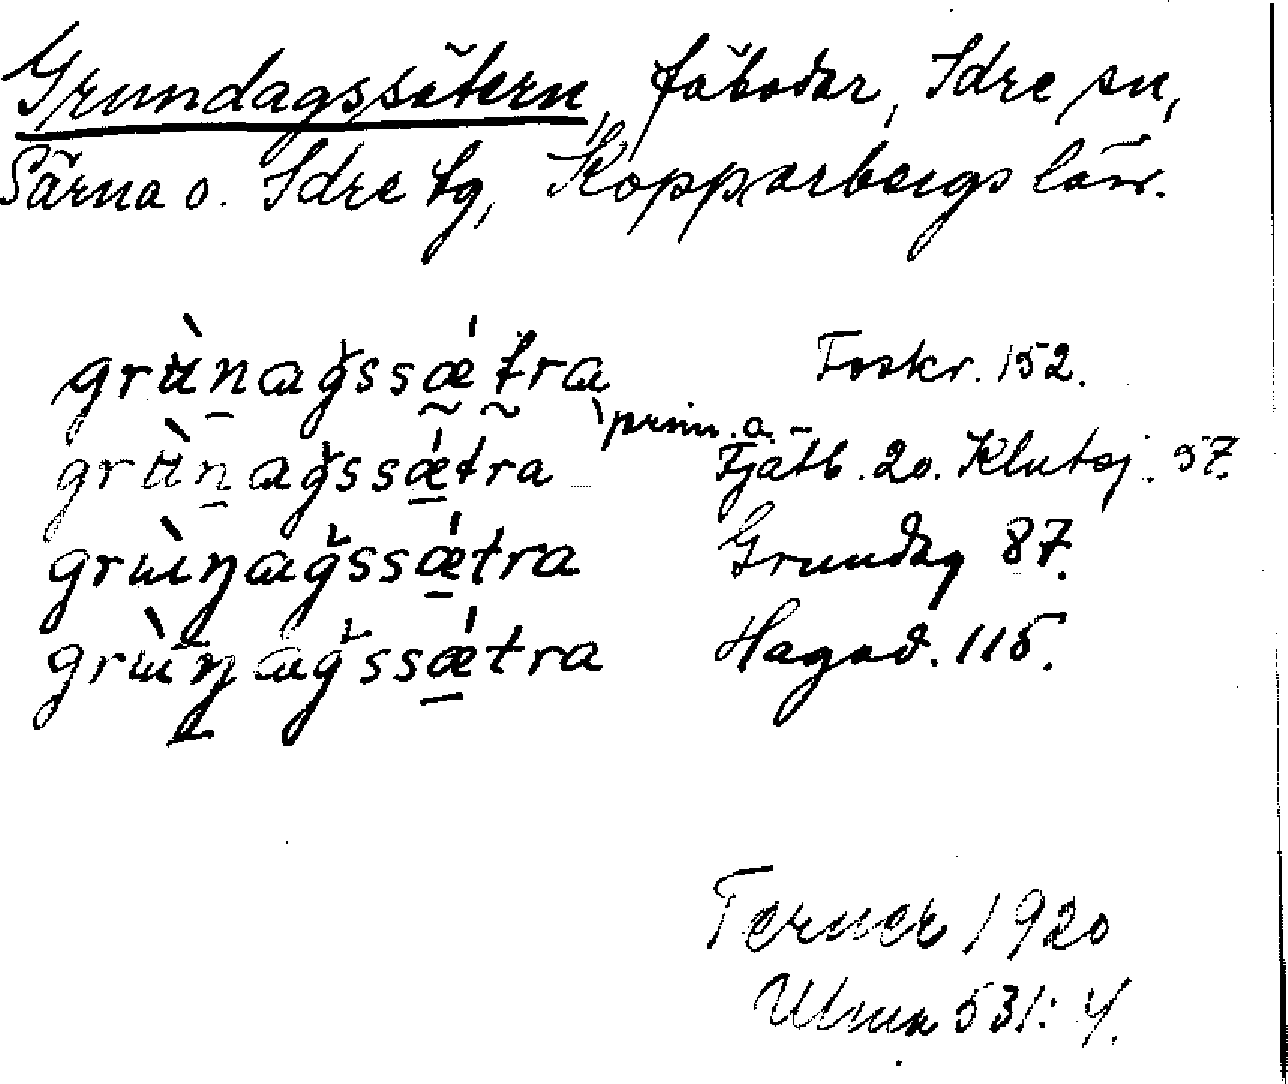 Grundagssätern, fäbodar, Idre sn,
Särna o. Idre tg, Kopparbergs län.
grùnagssǽtra Foskr. 152.
prim. a
grùnagssǽtra Fjätb. 20. Klutsj. 57.
grùŋagssǽtra Grundag 87.
grùŋagssǽtra Hagad. 115.
Terner 1920
Ulma 531: 4.